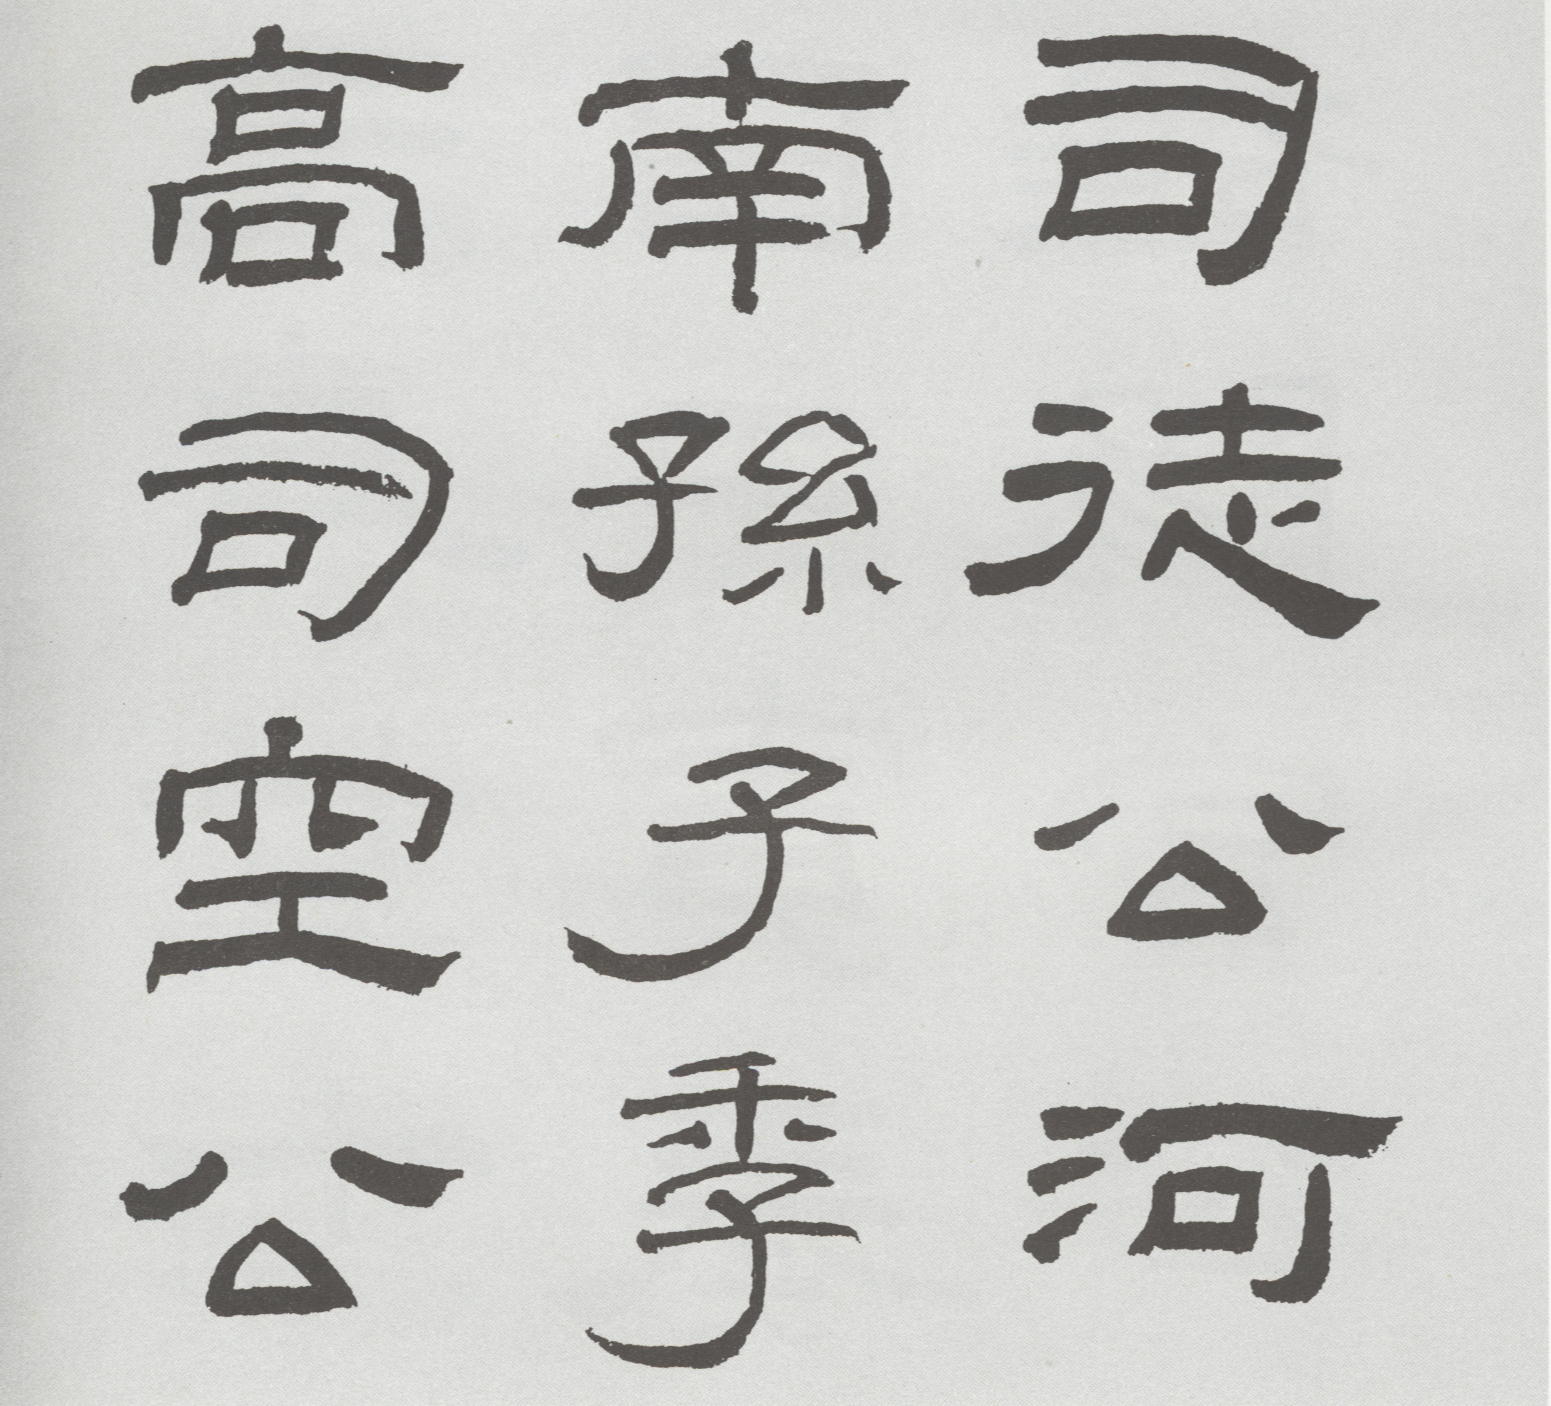 司徒公河
南孫子季
高司空公